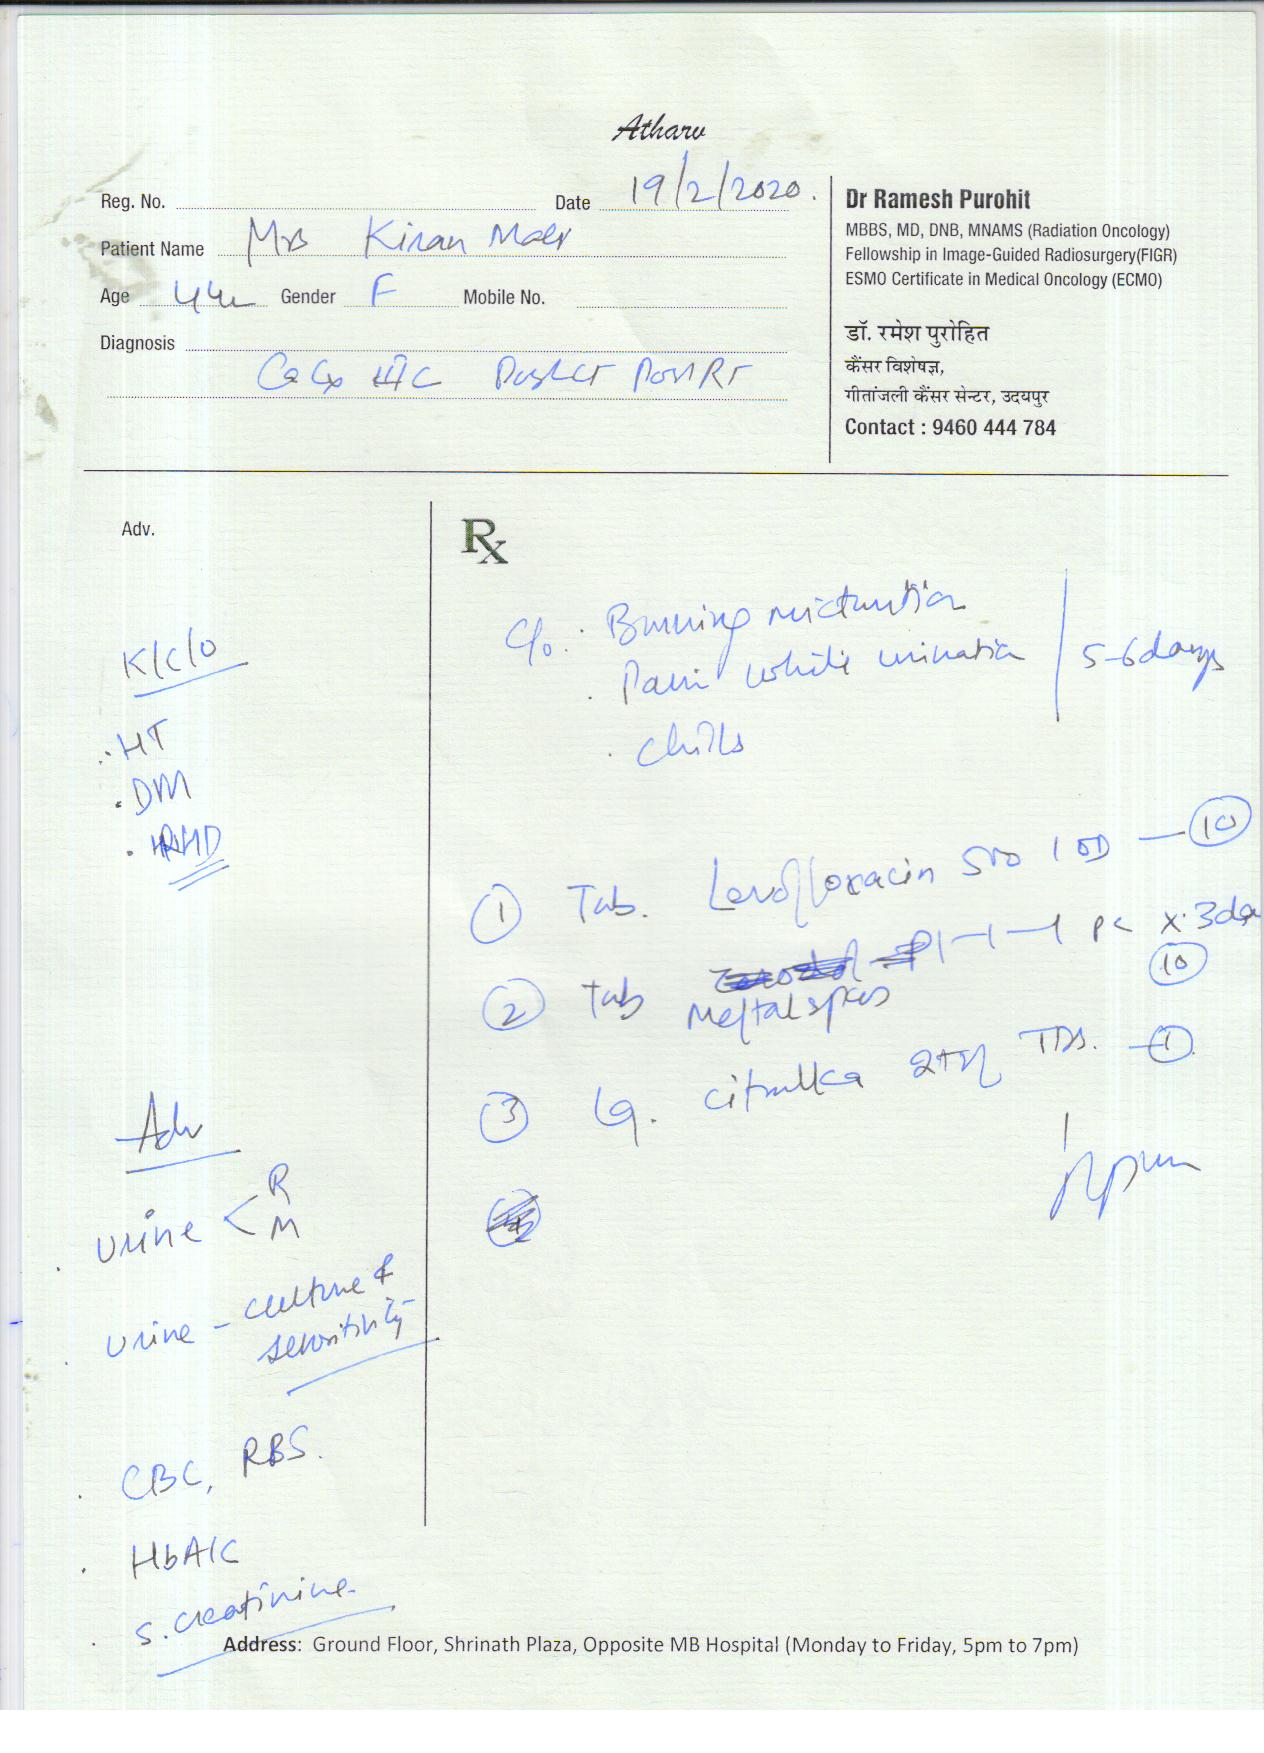 Atharv
Reg. No. Date 19/2/2020.
Patient Name Mrs Kiran
Age 44 Gender F Mobile No.
Diagnosis
Ca Cx Post CT Post RT
Dr Ramesh Purohit
MBBS, MD, DNB, MNAMS (Radiation Oncology)
Fellowship in Image-Guided Radiosurgery(FIGR)
ESMO Certificate in Medical Oncology (ECMO)
डॉ. रमेश पुरोहित
कैंसर विशेषज्ञ,
गीतांजली कैंसर सेन्टर, उदयपुर
Contact : 9460 444 784
Adv.
K/C/O
HT
DM
Adv
Urine < R
M
Urine - culture &
sensitivity
CBC, RBS.
HbA1C
S. creatinine
Rx
C/o. Burning micturition
Pain while urination
5-6 days
chills
① Tab. Levofloxacin 500 1 OD — ⑩
② Tab 1-1-1 pc x 3da
Meftal spas ⑩
③ Lq. citralka 2 TDS. — ①
Address: Ground Floor, Shrinath Plaza, Opposite MB Hospital (Monday to Friday, 5pm to 7pm)